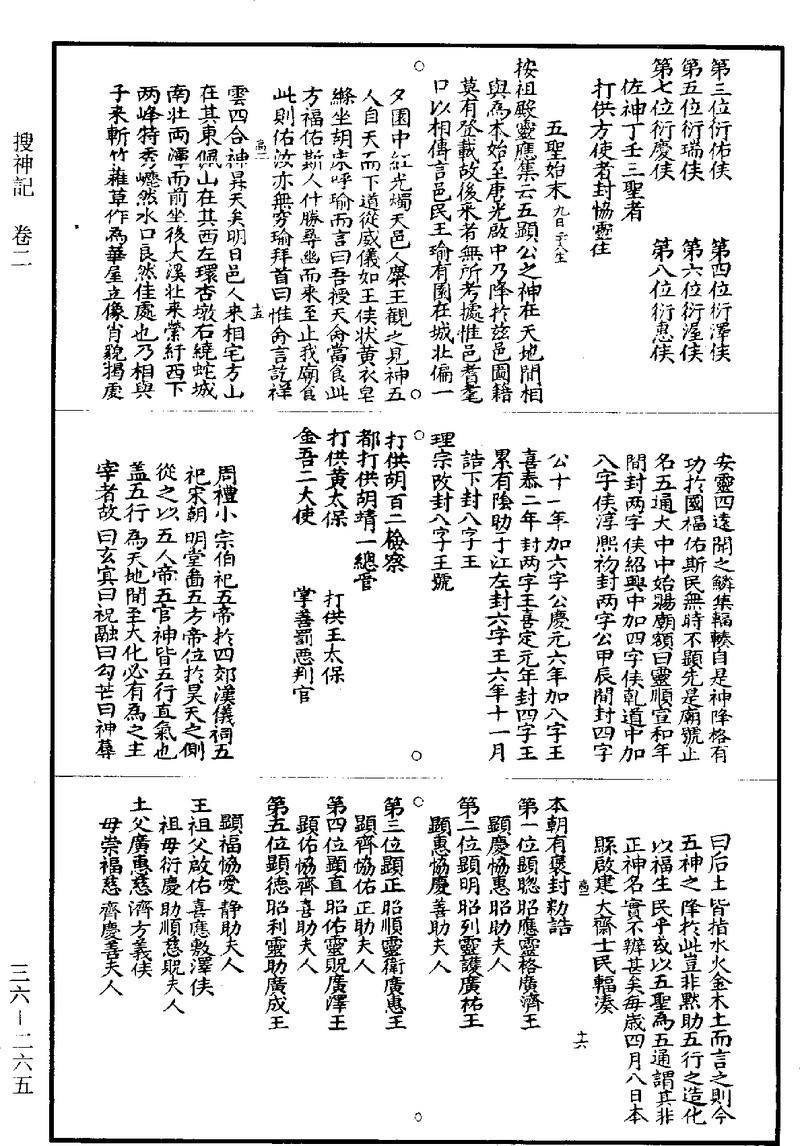 搜神記　卷二
第三位衍佑侯　第四位衍澤侯
第五位衍瑞侯　第六位衍渥侯
第七位衍慶侯　第八位衍惠侯
佐神丁壬三聖者
打供方使者封協靈位
五聖始末
按祖殿靈應集云五顯公之神在天地間相
與為本始至唐光啟中乃降於茲邑圖籍
莫有登載故後來者無所考據惟邑耆耄
口以相傳言邑民王瑜有園在城北偏一
夕園中紅光燭天邑人麇至觀之見神五
人自天而下道從威儀如王侯狀黃衣皂
絛坐胡床呼瑜而言曰吾授天命當食此
方福佑斯人什勝尋幽而來至止我廟食
此則佑汝亦無窮瑜拜首曰惟命言訖祥
雲四合神昇天矣明日邑人來相宅方山
在其東佩山在其西左環杏墩右繞蛇城
南北兩潭而前坐後大溪北來縈紆西下
兩峰特秀巉然水口良然佳處也乃相與
子來斬竹薙草作為華屋立像肖貌揭虔
安靈四遠聞之鱗集輻輳自是神降格有
功於國福佑斯民無時不顯先是廟號止
名五通大中中始賜廟額曰靈順宣和年
間封兩字侯紹興中加四字侯乾道中加
八字侯淳熙初封兩字公甲辰間封四字
公十一年加六字公慶元六年加八字王
喜泰二年封兩字王喜定元年封四字王
累有陰助于江左封六字王六年十一月
誥下封八字王
理宗改封八字王號
打供胡百二檢察
都打供胡靖一總管
打供黃太保　打供王太保
金吾二大使　掌善罰惡判官
周禮小宗伯祀五帝於四郊漢儀祠五
祀宋朝明堂畵五方帝位於昊天之側
從之以五人帝五官神皆五行直氣也
盖五行為天地間至大化必有為之主
宰者故曰玄冥曰祝融曰勾芒曰神蓐
曰后土皆指水火金木土而言之則今
五神之降於此豈非默助五行之造化
以福生民乎或以五聖為五通謂其非
正神名實不辨甚矣每歲四月八日本
縣啟建大齋士民輻湊
本朝有褒封勑誥
第一位顯聰昭應靈格廣濟王
顯慶協惠昭助夫人
第二位顯明昭列靈護廣祐王
顯惠協慶善助夫人
第三位顯正昭順靈衛廣惠王
顯齊協佑正助夫人
第四位顯直昭佑靈貺廣澤王
顯佑協齊喜助夫人
第五位顯德昭利靈助廣成王
顯福協愛靜助夫人
王祖父啟佑喜應敷澤侯
祖母衍慶助順慈貺夫人
土父廣惠慈濟方義侯
母崇福慈齊慶善夫人
十五
十六
三六—二六五